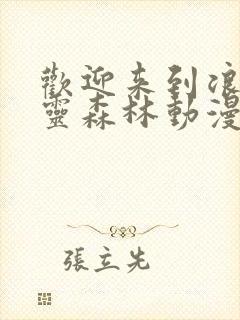 歡迎来到浪
靈森林動漫
張立先